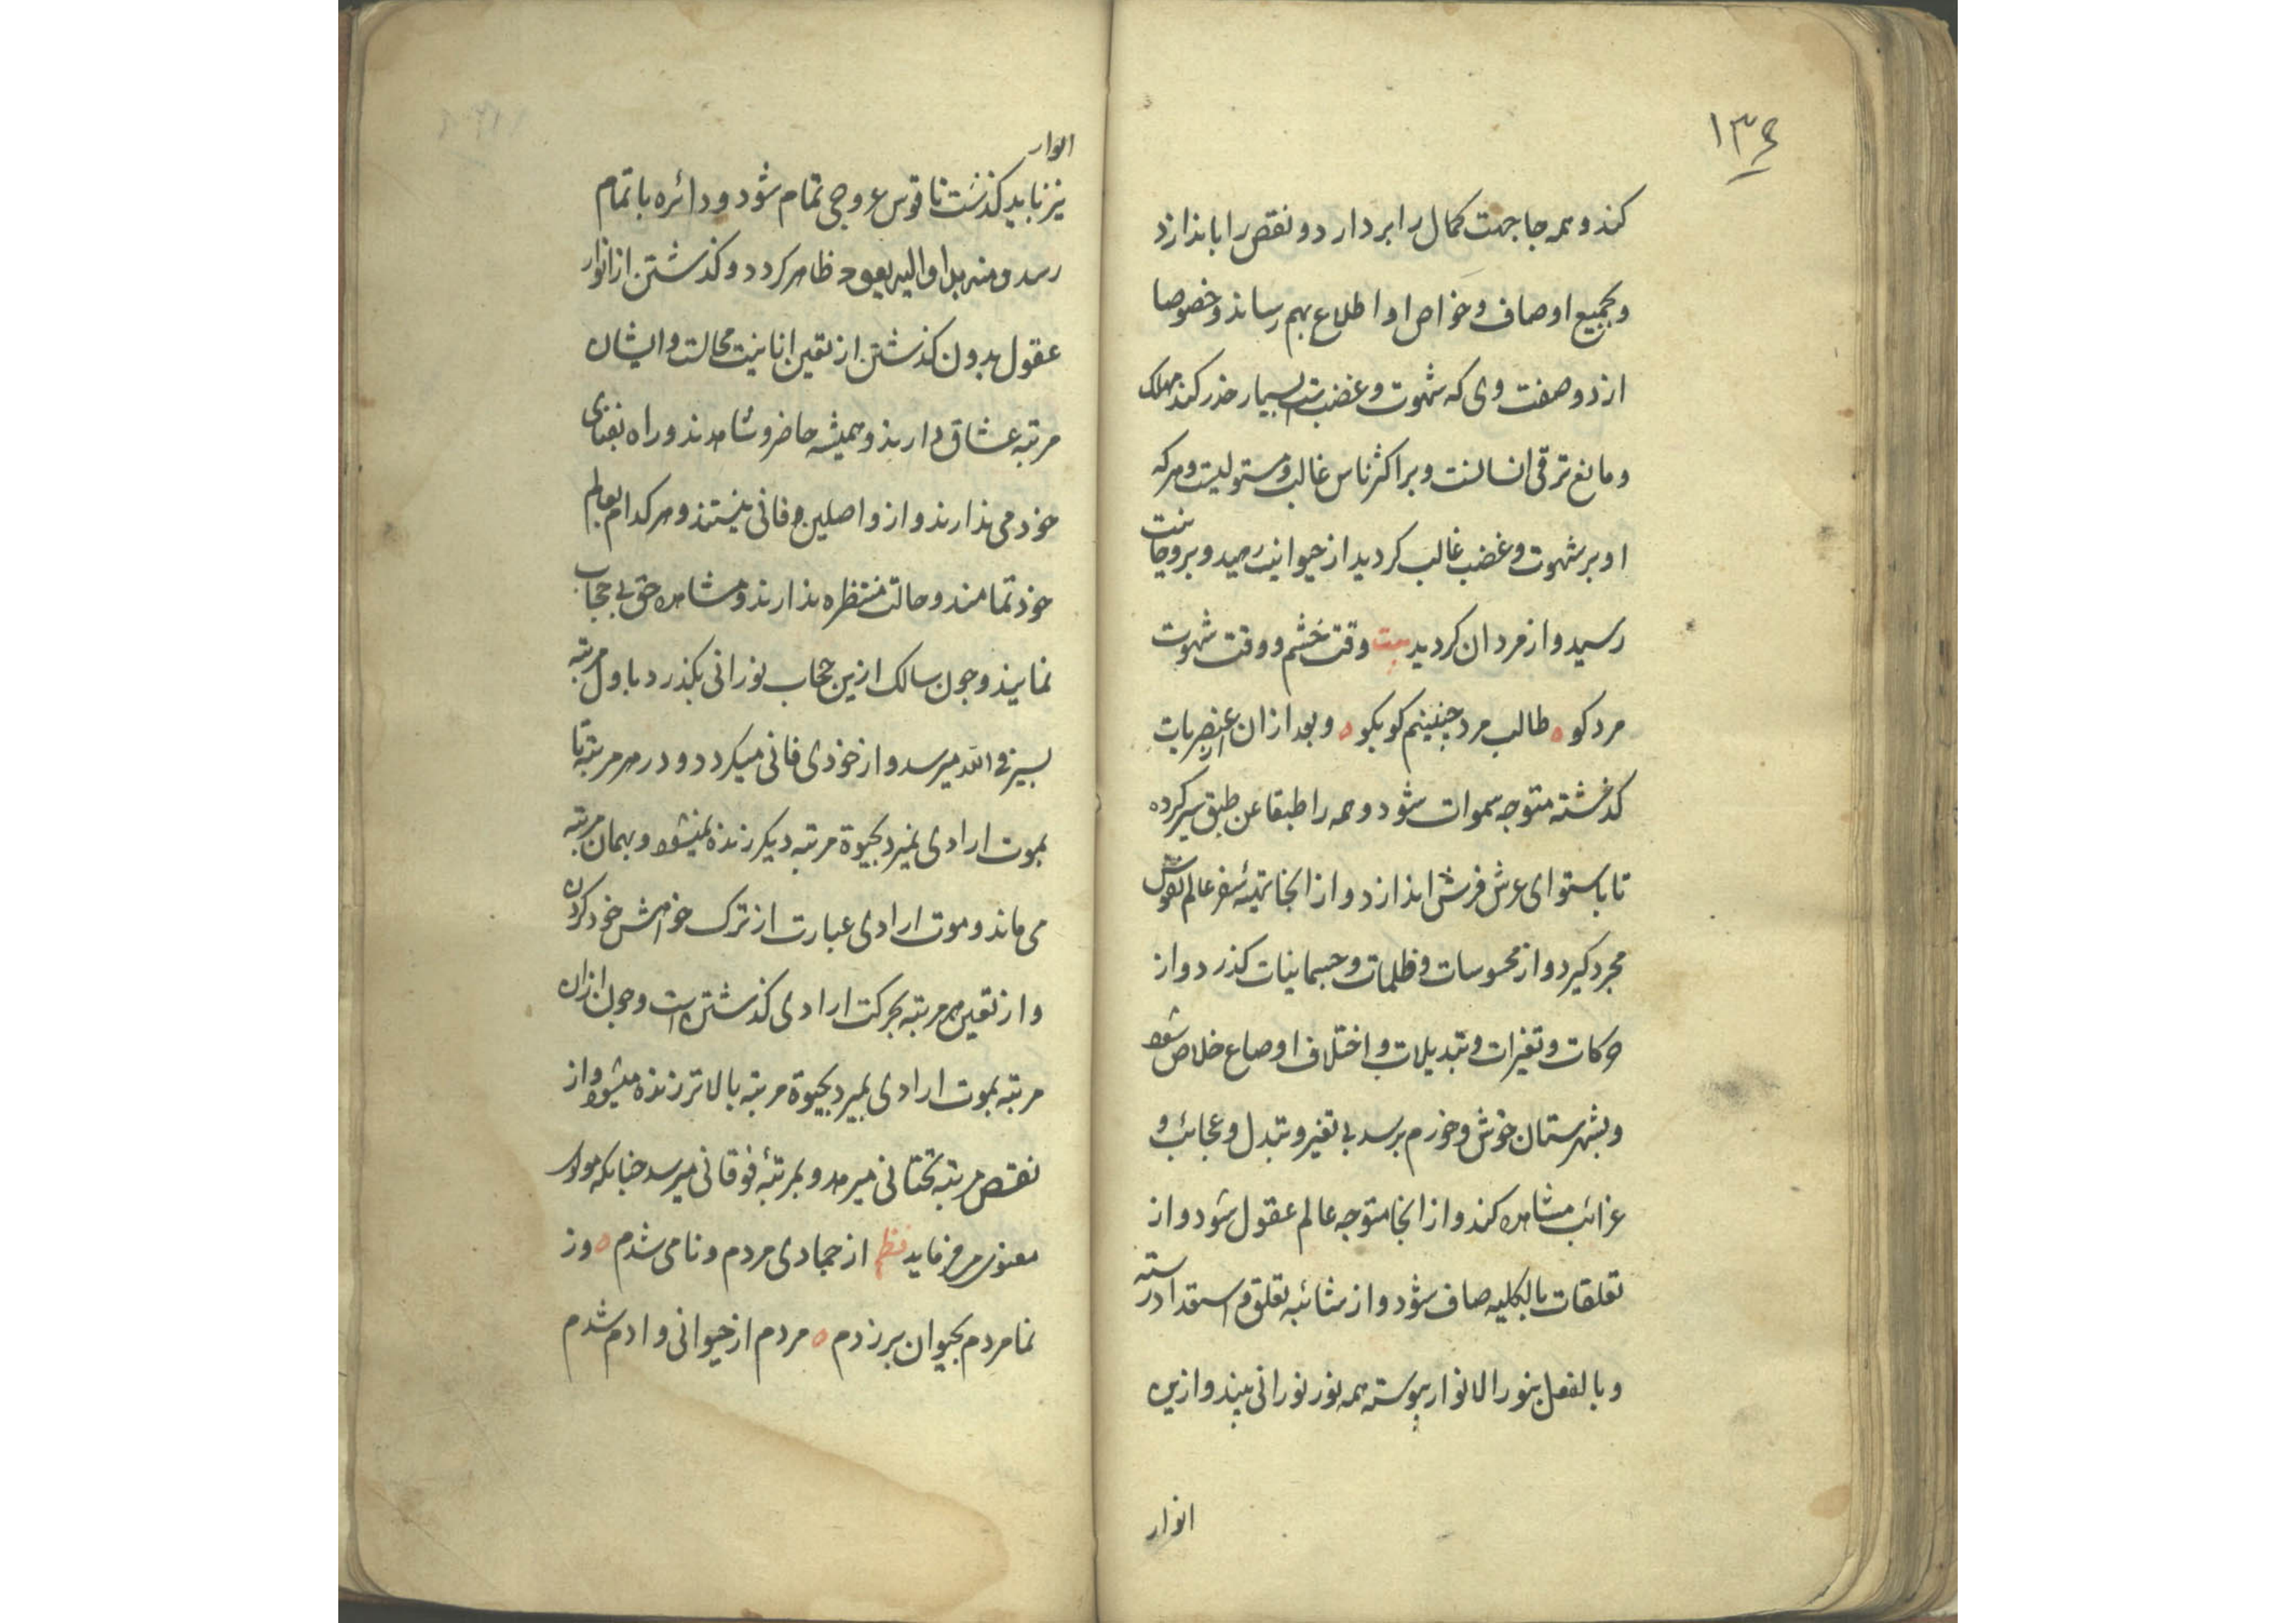 ١٣٤
کند و همه جا جهت کمال را بردارد و نقص را باندازد
و بجمیع اوصاف و خواص او اطلاع بهم رساند و خصوصا
از دو صفت وی که شهوت و غضب است بسیار حذر کند مهلک
و مانع ترقی انسانست و بر اکثر ناس غالب و مستولیست و هرکه
او بر شهوت و غضب غالب کردید از حیوانیت رهید و بروحانیت
رسید و از مردان کردید بیت وقت خشم و وقت شهوت
مرد کو ه طالب مرد چنینم کو بکو ه و بعد از ان از عنصریات
کذشته متوجه سموات شود و همه را طبقا عن طبق سیر کرده
تا باستوای عرش فرش اندازد و از انجا تهیئه سفر عالم نفوس
مجرد کیرد و از محسوسات و ظلمات و جسمانیات کذرد و از
حرکات و تغیرات و تبدیلات و اختلاف اوضاع خلاص شود
و بشهرستان خوش و خورم برسد بی تغیر و تبدل و عجائب و
غرائب مشاهده کند و از انجا متوجه عالم عقول شود و از
تعلقات بالکلیه صاف شود و از شائبه تعلق و استعداد رسته
و بالفعل بنور الانوار پیوسته همه نور نورانی بیند و ازین
انوار
انوار
نیز باید کذشت تا قوس عروجی تمام شود و دائره باتمام
رسد و منه بدا و الیه یعود ظاهر کردد و کذشتن از انوار
عقول بدون کذشتن از تعین انانیت محالست و ایشان
مرتبه عشاق دارند و همیشه حاضر و شاهدند و راه بفنای
خود می ندارند و از واصلین و فانی نیستند و هرکدام بعالم
خود تمامند و حالت منتظره ندارند و مشاهده حق بی حجاب
نمایند و چون سالک ازین حجاب نورانی بکذرد باول مرتبه
بسیر فی الله میرسد و از خودی فانی میکردد و در هر مرتبه تا
بموت ارادی نمیرد بحیوة مرتبه دیکر زنده نمیشود و بهمان مرتبه
می ماند و موت ارادی عبارت از ترک خواهش خود کردن
و از تعین هر مرتبه بحرکت ارادی کذشتن است و چون ازان
مرتبه بموت ارادی بمیرد بحیوة مرتبه بالاتر زنده میشود و از
نقص مرتبه تحتانی میرهد و بمرتبهٔ فوقانی میرسد چنانکه مولوی
معنوی میفرماید نظم از جمادی مردم و نامی شدم ه وز
نما مردم بحیوان بر زدم ه مردم از حیوانی و ادم شدم